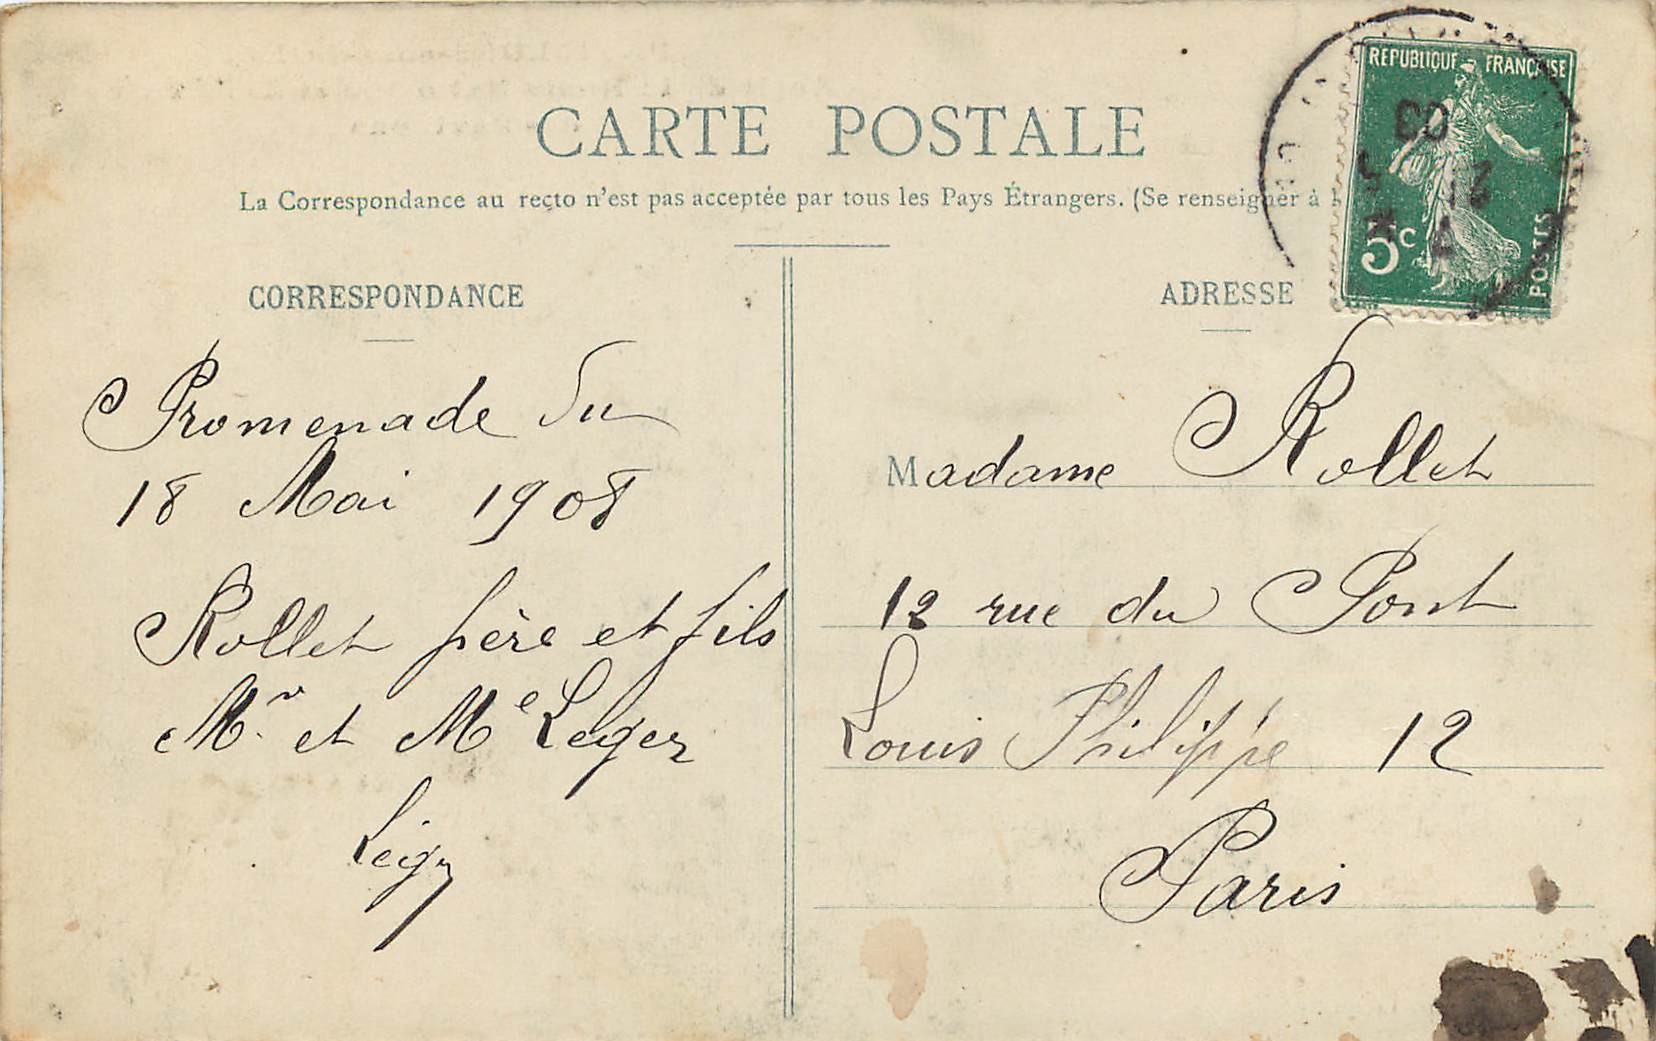 CARTE POSTALE
La Correspondance au recto n'est pas acceptée par tous les Pays Étrangers. (Se renseigner à
REPUBLIQUE FRANÇAISE
5c
POSTES
CORRESPONDANCE
Promenade du
18 Mai 1908
Rollet père et fils
Mr et Me Leger
ADRESSE
Madame Rollet
12 rue du Pont
Louis Philippe 12
Paris